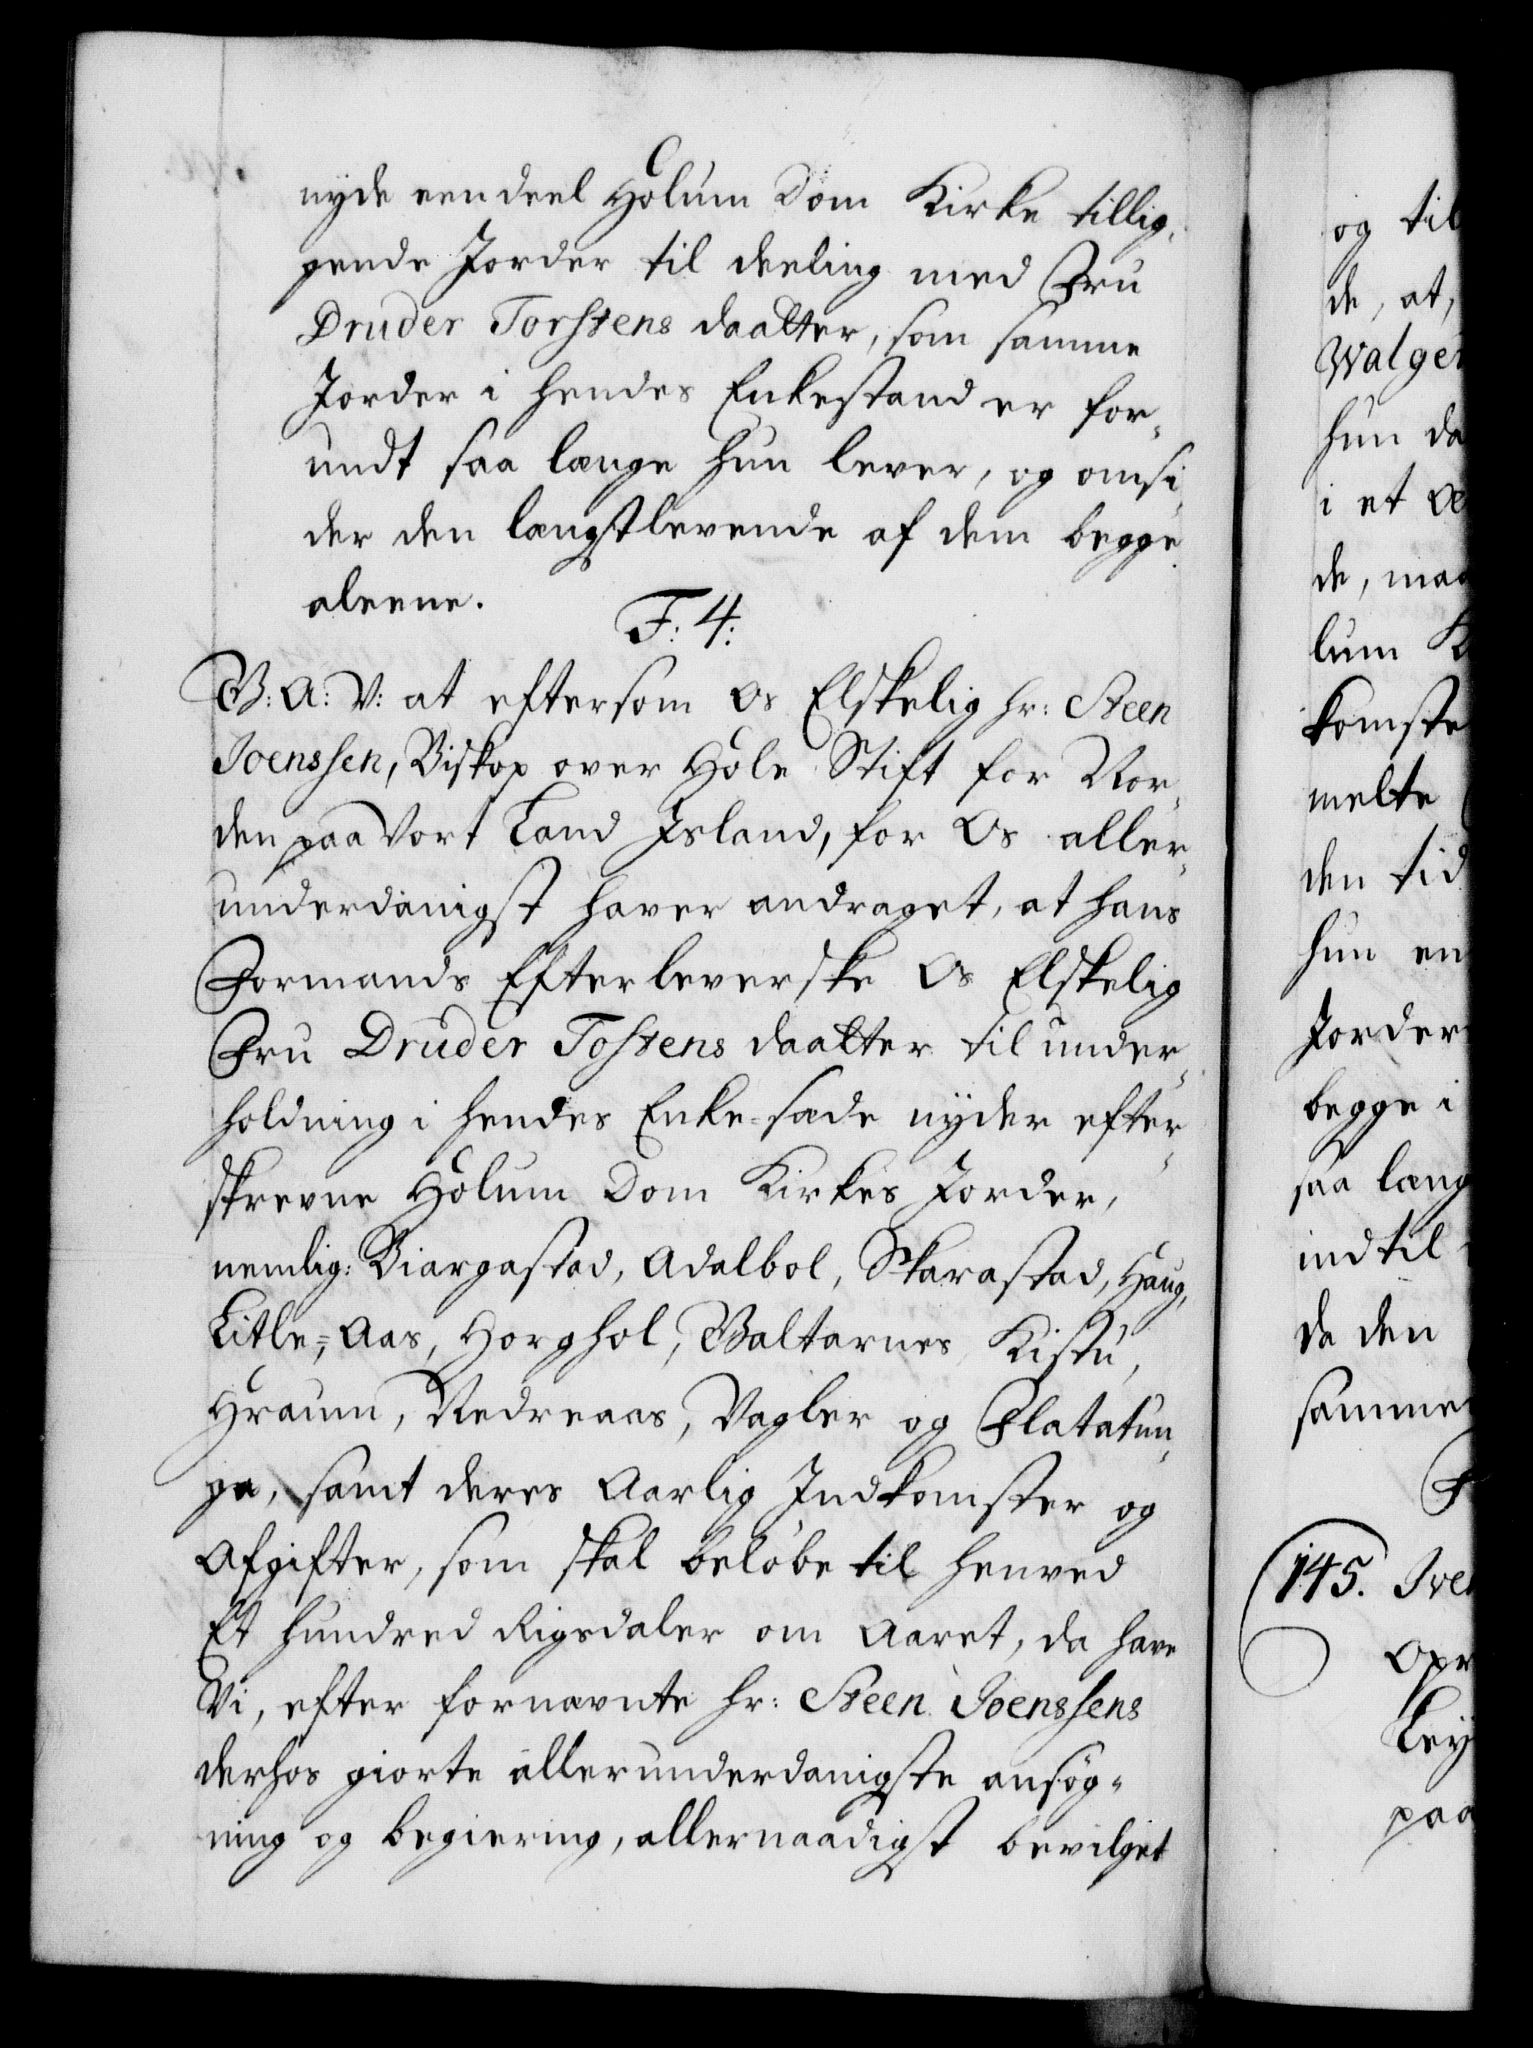 nyde een deel Holum Dom Kirke tillig,
gende Jorder til deeling med Fru
Druder Torstens daatter, som samme
Jorder i hendes Enkestand er for,
undt saa længe hun lever, og omsi,
der den længstlevende af dem begge
aleene.
F: 4:
G: A: V: at eftersom Os Elskelig hr: Steen
Joenssen, Biskop over Hole Stift for Nor,
den paa Vort Land Jsland, for Os aller,
underdanigst haver andraget, at hans
Formands Efterleverske Os Elskelig
Fru Druder Tostens daatter til under,
holdning i hendes Enke-sæde nyder efter,
skrevne Holum Dom Kirkes Jorder,
nemlig: Biargastad, Adalbol, Skarastad, Haug,
Litle-Aas, Horghol, Valtarnes Kistu,
Hraum, Nedreaas, Vagler og Flatatun,
ga, samt deres Aarlig Jndkomster og
Afgifter, som skal beløbe til henved
Et hundred Rigsdaler om Aaret, da have
Vi, efter fornævnte hr: Steen Joenssens
derhos giorte allerunderdanigste ansøg-
ning og begiering, allernaadigst bevilget
og til
de, at,
Walger
hun da
i et
de, maa
lum K
komste
melte
den tid
hun en
Jorder
begge i
saa læng
indtil
da den
samme
F
145. Jve
Opr
Ley
paa